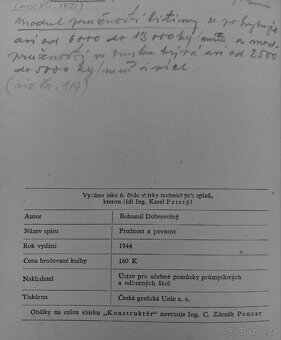 (viz str. 103)
modul pružnosti litiny se pohybuje
asi od 6000 do 13000 kg/mm², a mod.
pružnosti ve smyku bývá asi od 2500
do 5000 kg/mm² i více.
(viz str. 119)
Vydáno jako 6. číslo sbírky technických spisů,
kterou řídí Ing. Karel Petrtýl
Autor Bohumil Dobrovolný
Název spisu Pružnost a pevnost
Rok vydání 1944
Cena brožované knihy 160 K
Nakladatel Ústav pro učebné pomůcky průmyslových
a odborných škol
Tiskárna Česká grafická Unie a. s.
Obálky na celou sbírku „Konstruktér" navrhuje Ing. C. Zdeněk Poncar
sbazar.cz